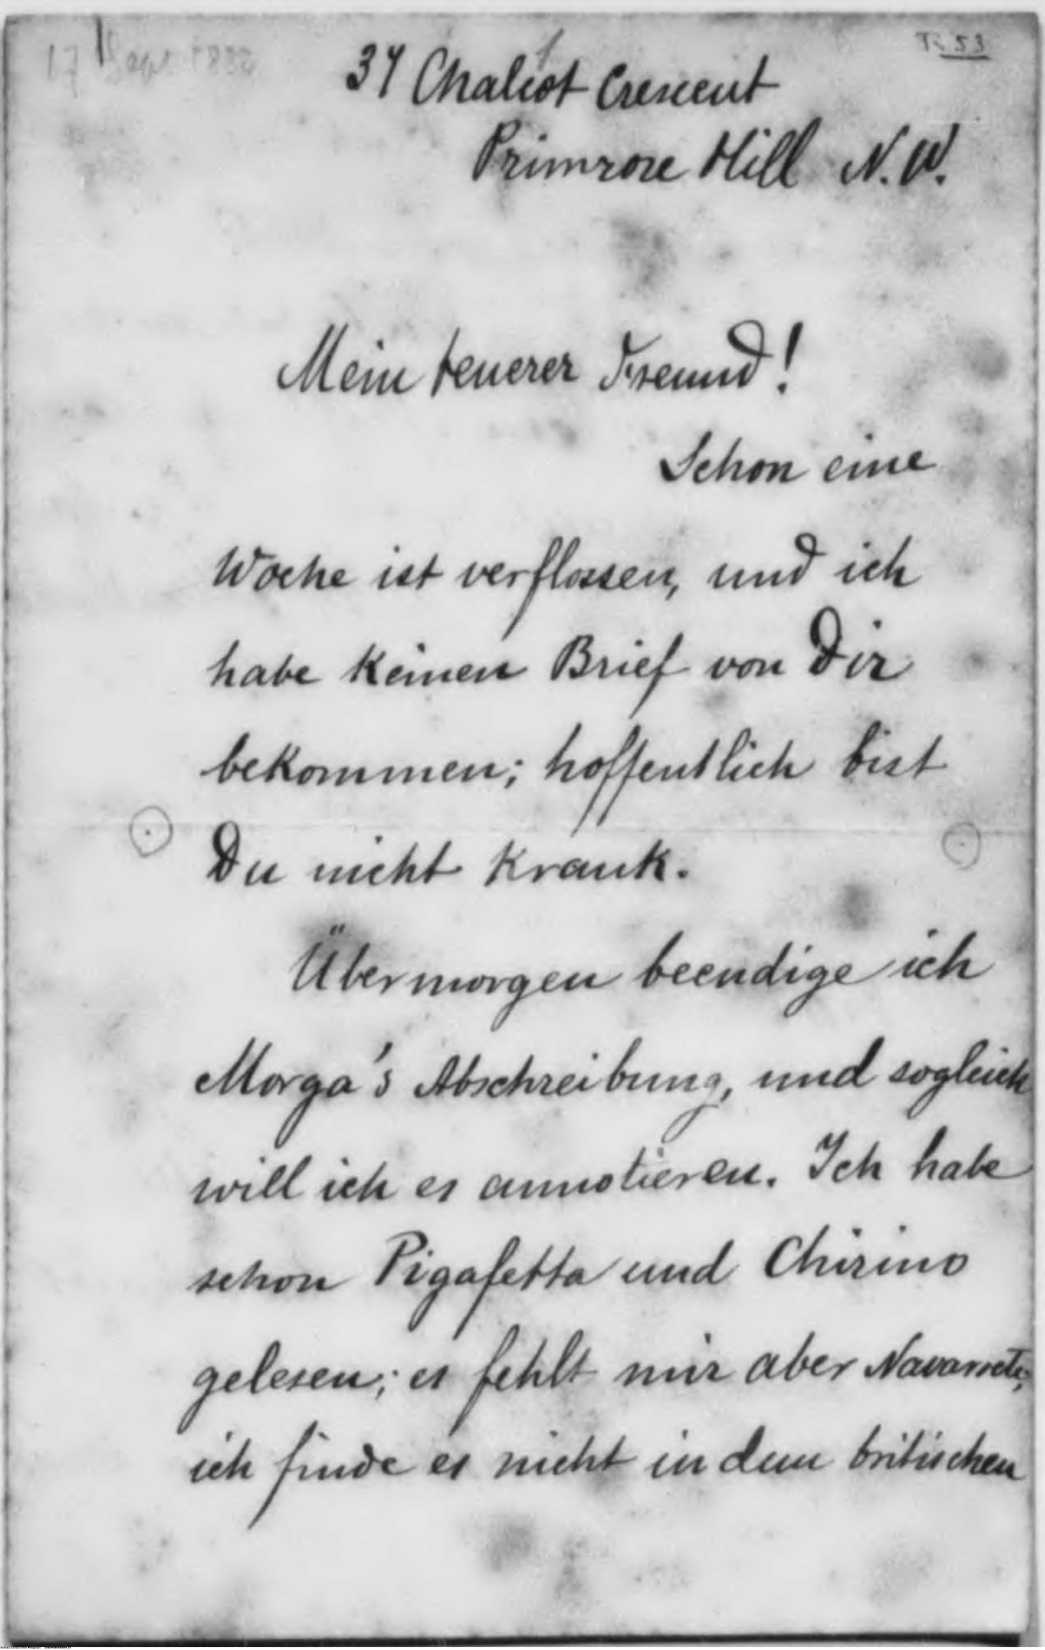 37 Chalcot Crescent
Primrose Hill N.W.
Mein teuerer Freund!
Schon eine
Woche ist verflossen, und ich
habe keinen Brief von Dir
bekommen; hoffentlich bist
Du nicht krank.
Übermorgen beendige ich
Morga's Abschreibung, und sogleich
will ich es annotieren. Ich habe
schon Pigafetta und Chirino
gelesen; es fehlt mir aber Navarrete,
ich finde es nicht in dem britischen